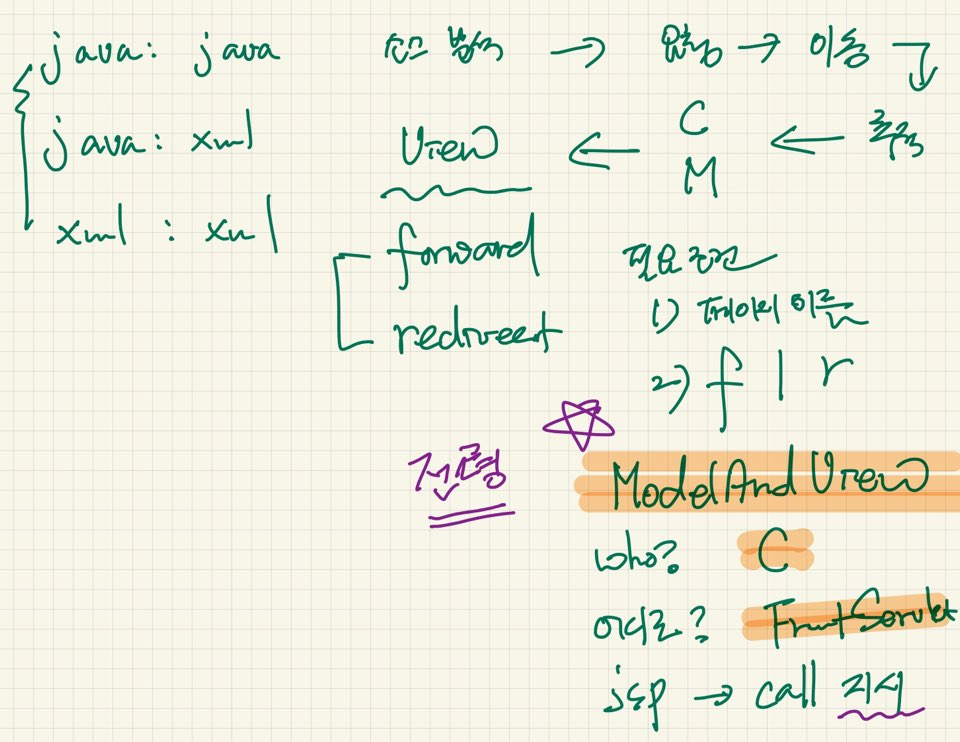 java : java
java : xml
xml : xml
→ 입장 → 이동
C
M ← 목적
View ←
forward
redirect
필요조건
1) 페이지 이름
2) f | r
☆
전령
ModelAndView
who? C
어디로? FrontServlet
jsp → call 지시